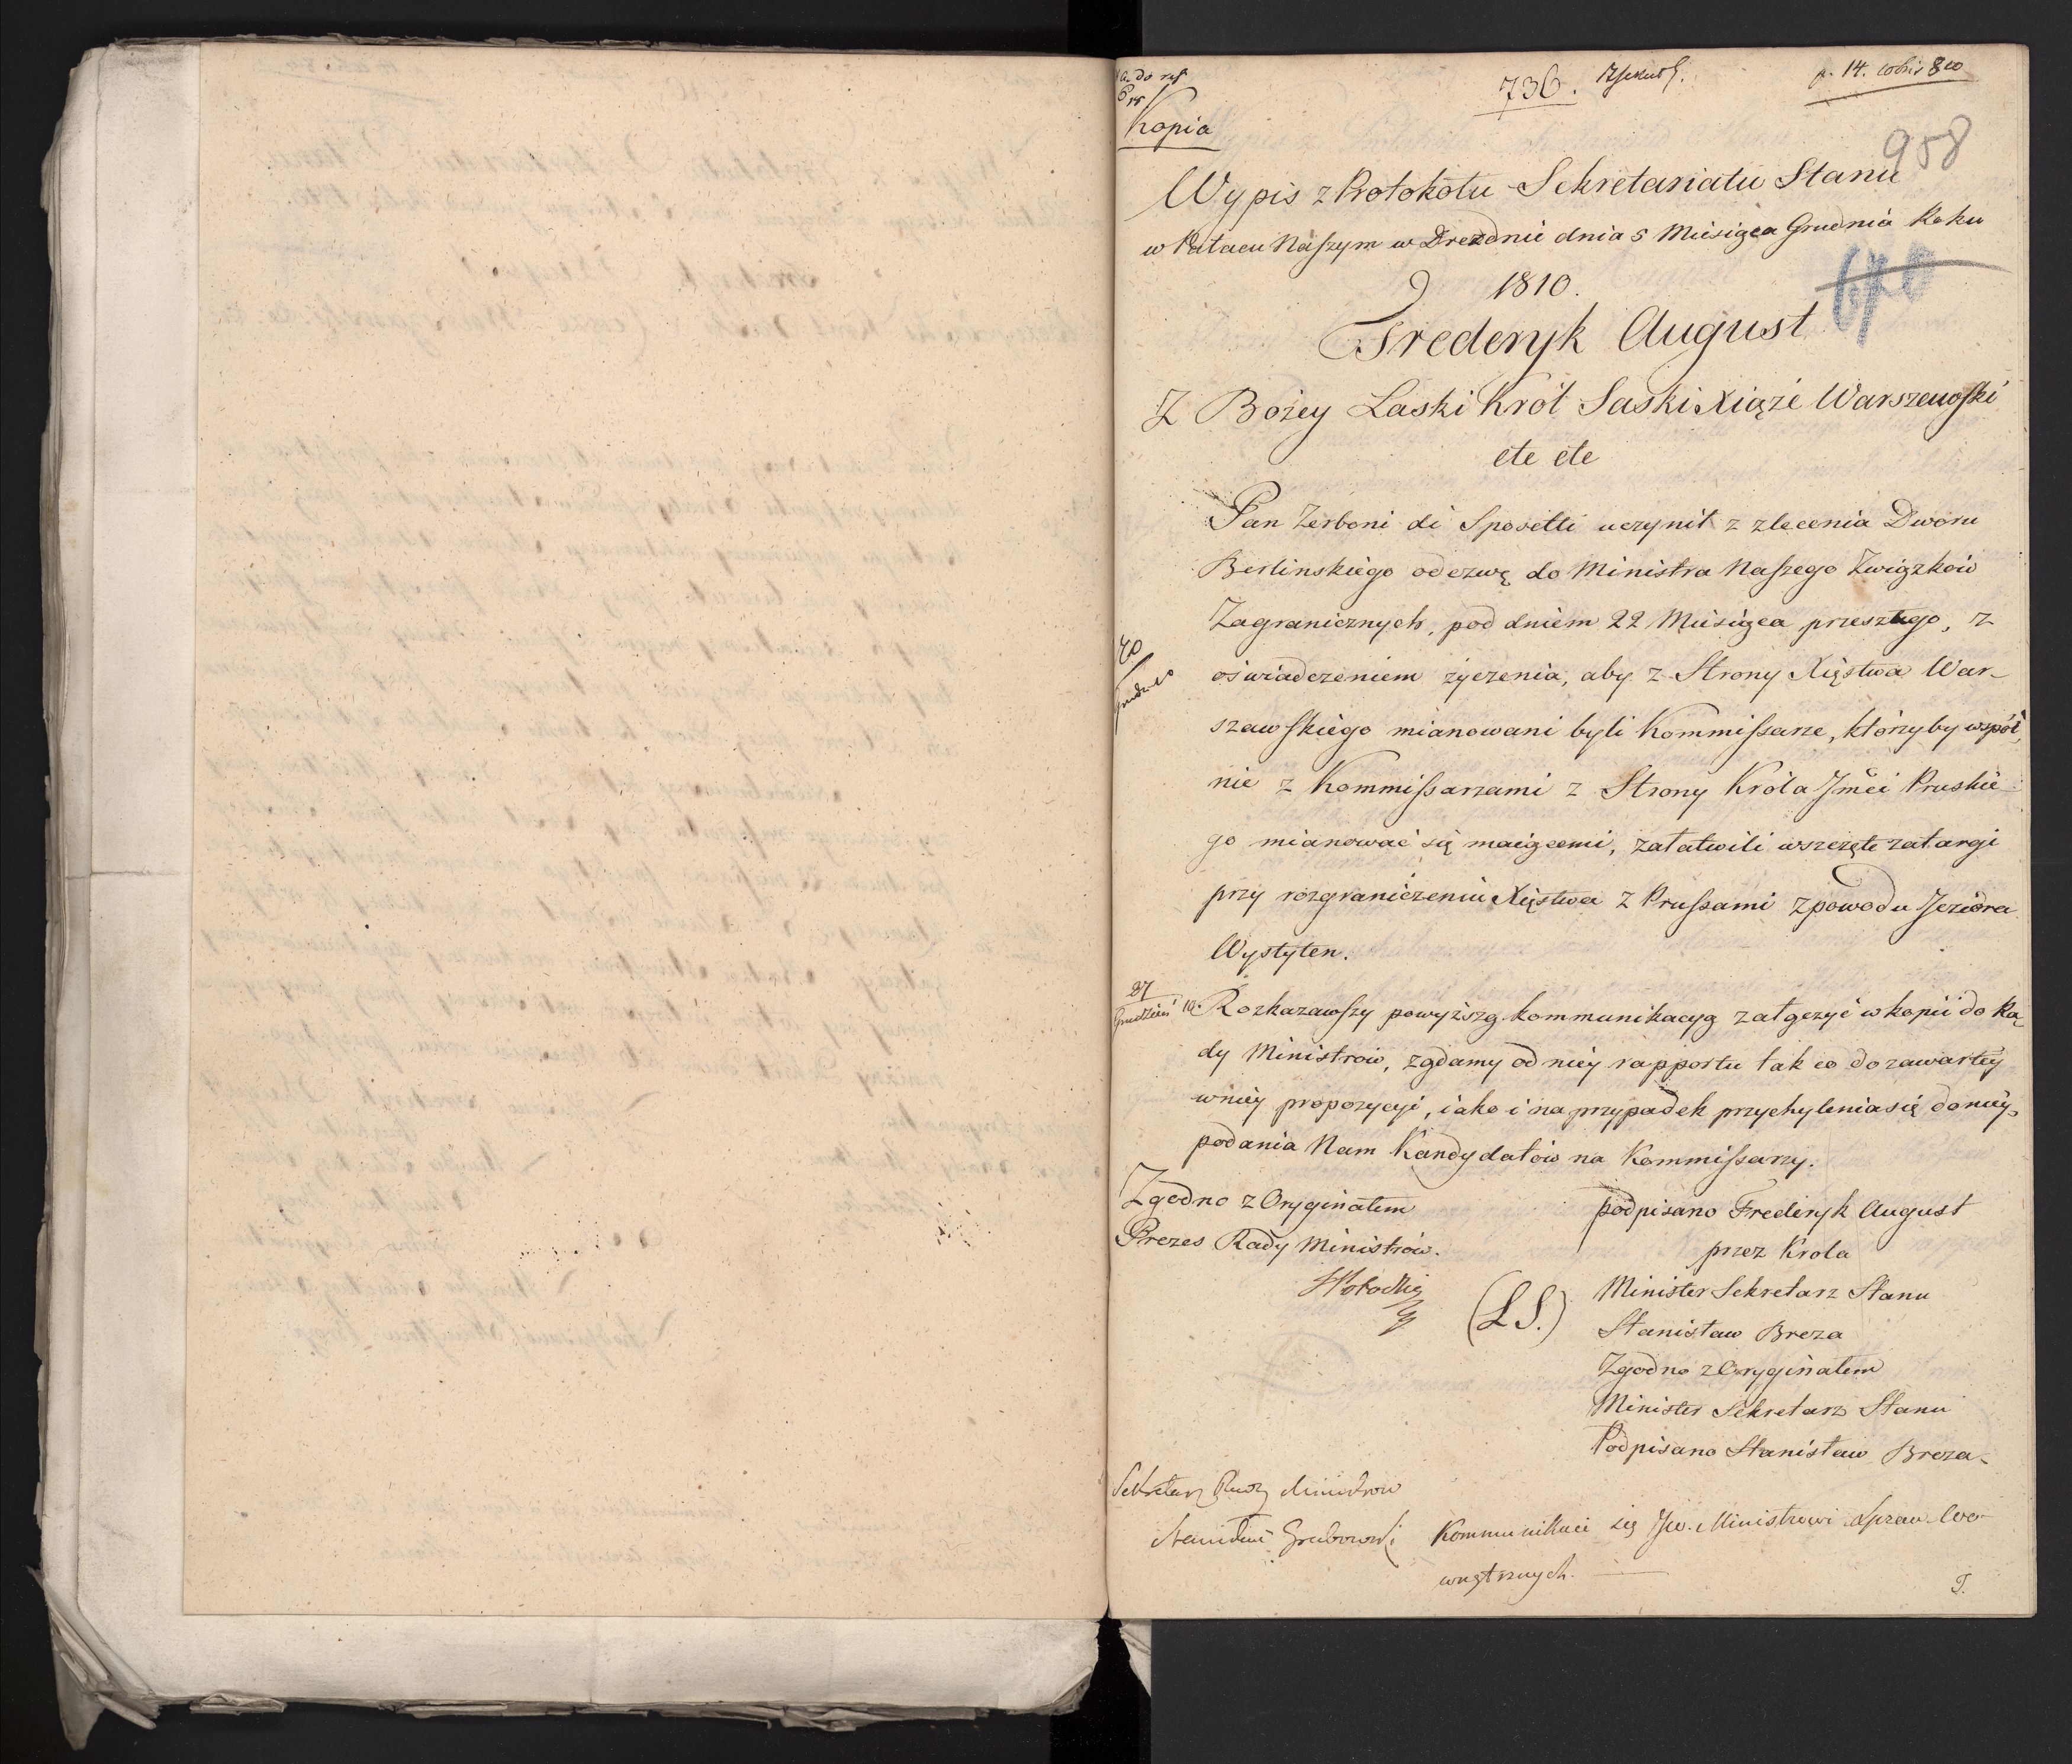 736.
p. 14. 10bris 810
Kopia
958
Wypis z Protokołu Sekretariatu Stanu
w Pałacu Naszym w Dreźdnie dnia 5 Miesiąca Grudnia Roku
1810.
670
Frederyk August
Z Bożey Łaski Król Saski Xiąże Warszawski
etc etc
Pan Zerboni di Sposetti uczynił z zlecenia Dworu
Berlinskiego odezwę do Ministra Naszego Związków
Zagranicznych, pod dniem 22 Miesiąca przeszłego, z
oświadczeniem życzenia, aby z Strony Xięstwa War-
szawskiego mianowani byli Kommissarze, którzyby wspól-
nie z Kommissarzami z Strony Króla Jmci Pruskie-
go mianować się maiącemi, załatwili wszczęte zatargi
przy rozgraniczeniu Xięstwa z Prussami z powodu Jeziora
Wystyten.
27
Grudzień 10.
Rozkazawszy powyższą kommunikacyą załączyć w kopii do Ra-
dy Ministrów, żądamy od niey rapportu tak co do zawartey
w niey propozycyi, iako i na przypadek przychylenia się do niey,
podania Nam Kandydatów na Kommissarzy.
Zgodno z Oryginałem
Prezes Rady Ministrów.
podpisano Frederyk August
przez Króla
(LS.)
Minister Sekretarz Stanu
Stanisław Breza
Zgodno z Oryginałem
Minister Sekretarz Stanu
Podpisano Stanisław Breza
Sekretarz Rady Ministrow
Stanisław Grabowski
Kommunikuie się JW. Ministrowi Spraw We-
wnętrznych.